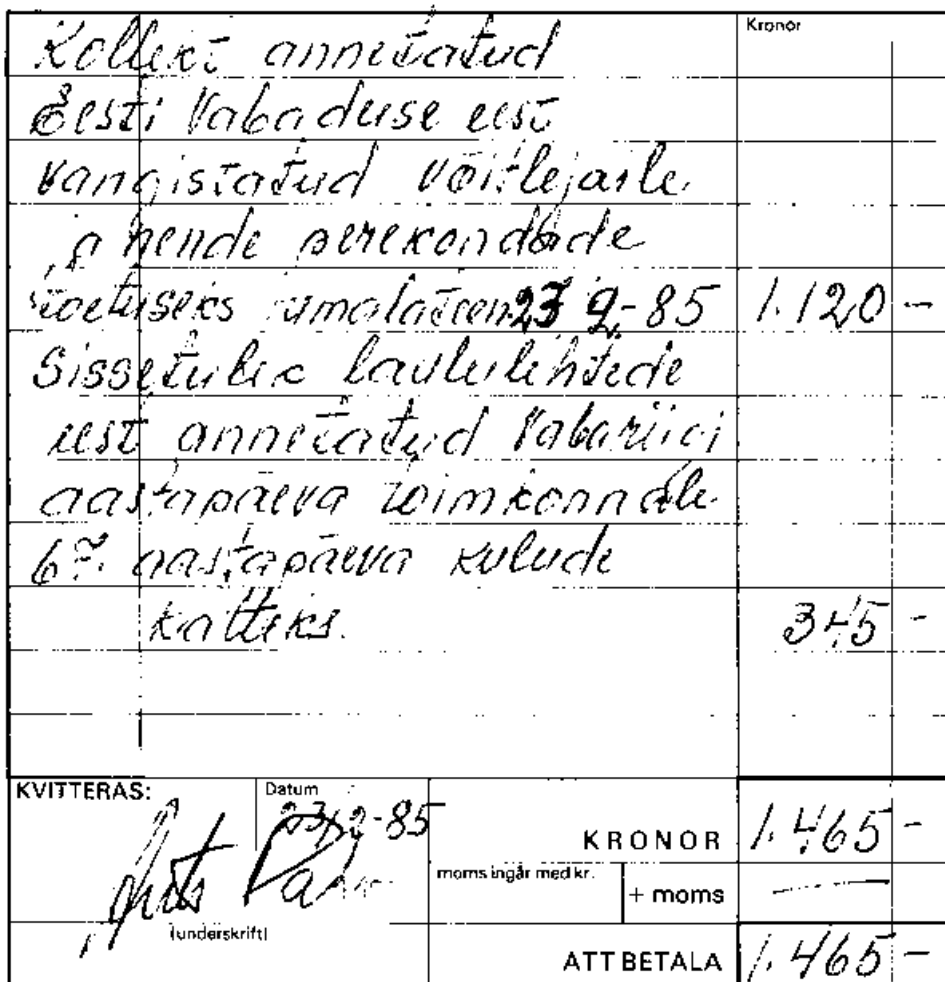 Kronor
Kollekt annetatud
Eesti Vabaduse eest
vangistatud võitlejaile
ja nende perekondade
toetuseks jumalateen 23 2.-85 1.120-
Sissetulek laululehtede
eest annetatud Vabariigi
aastapäeva toimkonnale
67. aastapäeva kulude
katteks. 345-
KVITTERAS: Datum
23/2-85
KRONOR 1.465-
moms ingår med kr.
+ moms —
(underskrift)
ATT BETALA 1.465-